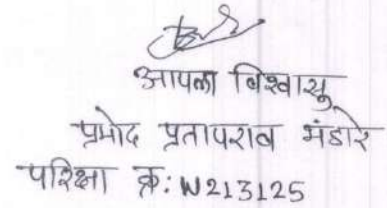 आपला विश्वासू
प्रमोद प्रतापराव भंडारे
परिक्षा क्र: W213125